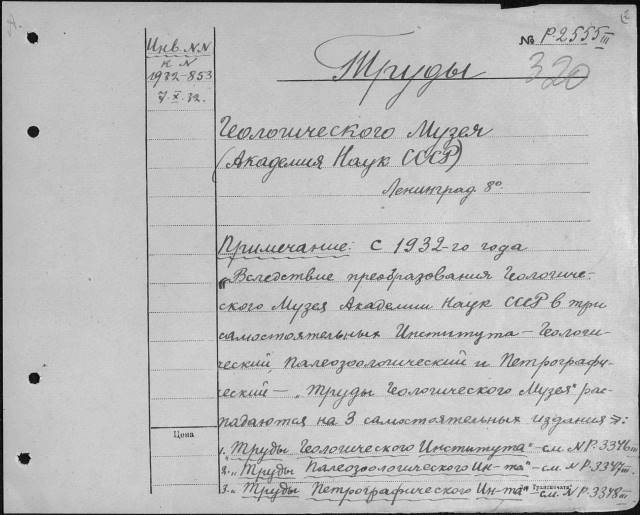 Инв. NN
№ Р. 2555 III
н N
1932-853
7.X.32.
320
Труды
Геологического Музея
(Академия Наук СССР)
Ленинград 8º
Примечание: с 1932-го года
„Вследствие преобразования Геологиче-
ского Музея Академии Наук СССР в три
самостоятельных Института – Геологи-
ческий, Палеозоологический и Петрографи-
ческий – „Труды Геологического Музея" рас-
падаются на 3 самостоятельных издания":
Цена
1. „Труды Геологического Института" – см. N Р. 3346 III
2. „Труды Палеозоологического Ин-та" – см. N Р. 3347 III
3. „Труды Петрографического Ин-та" см. N Р. 3348 III